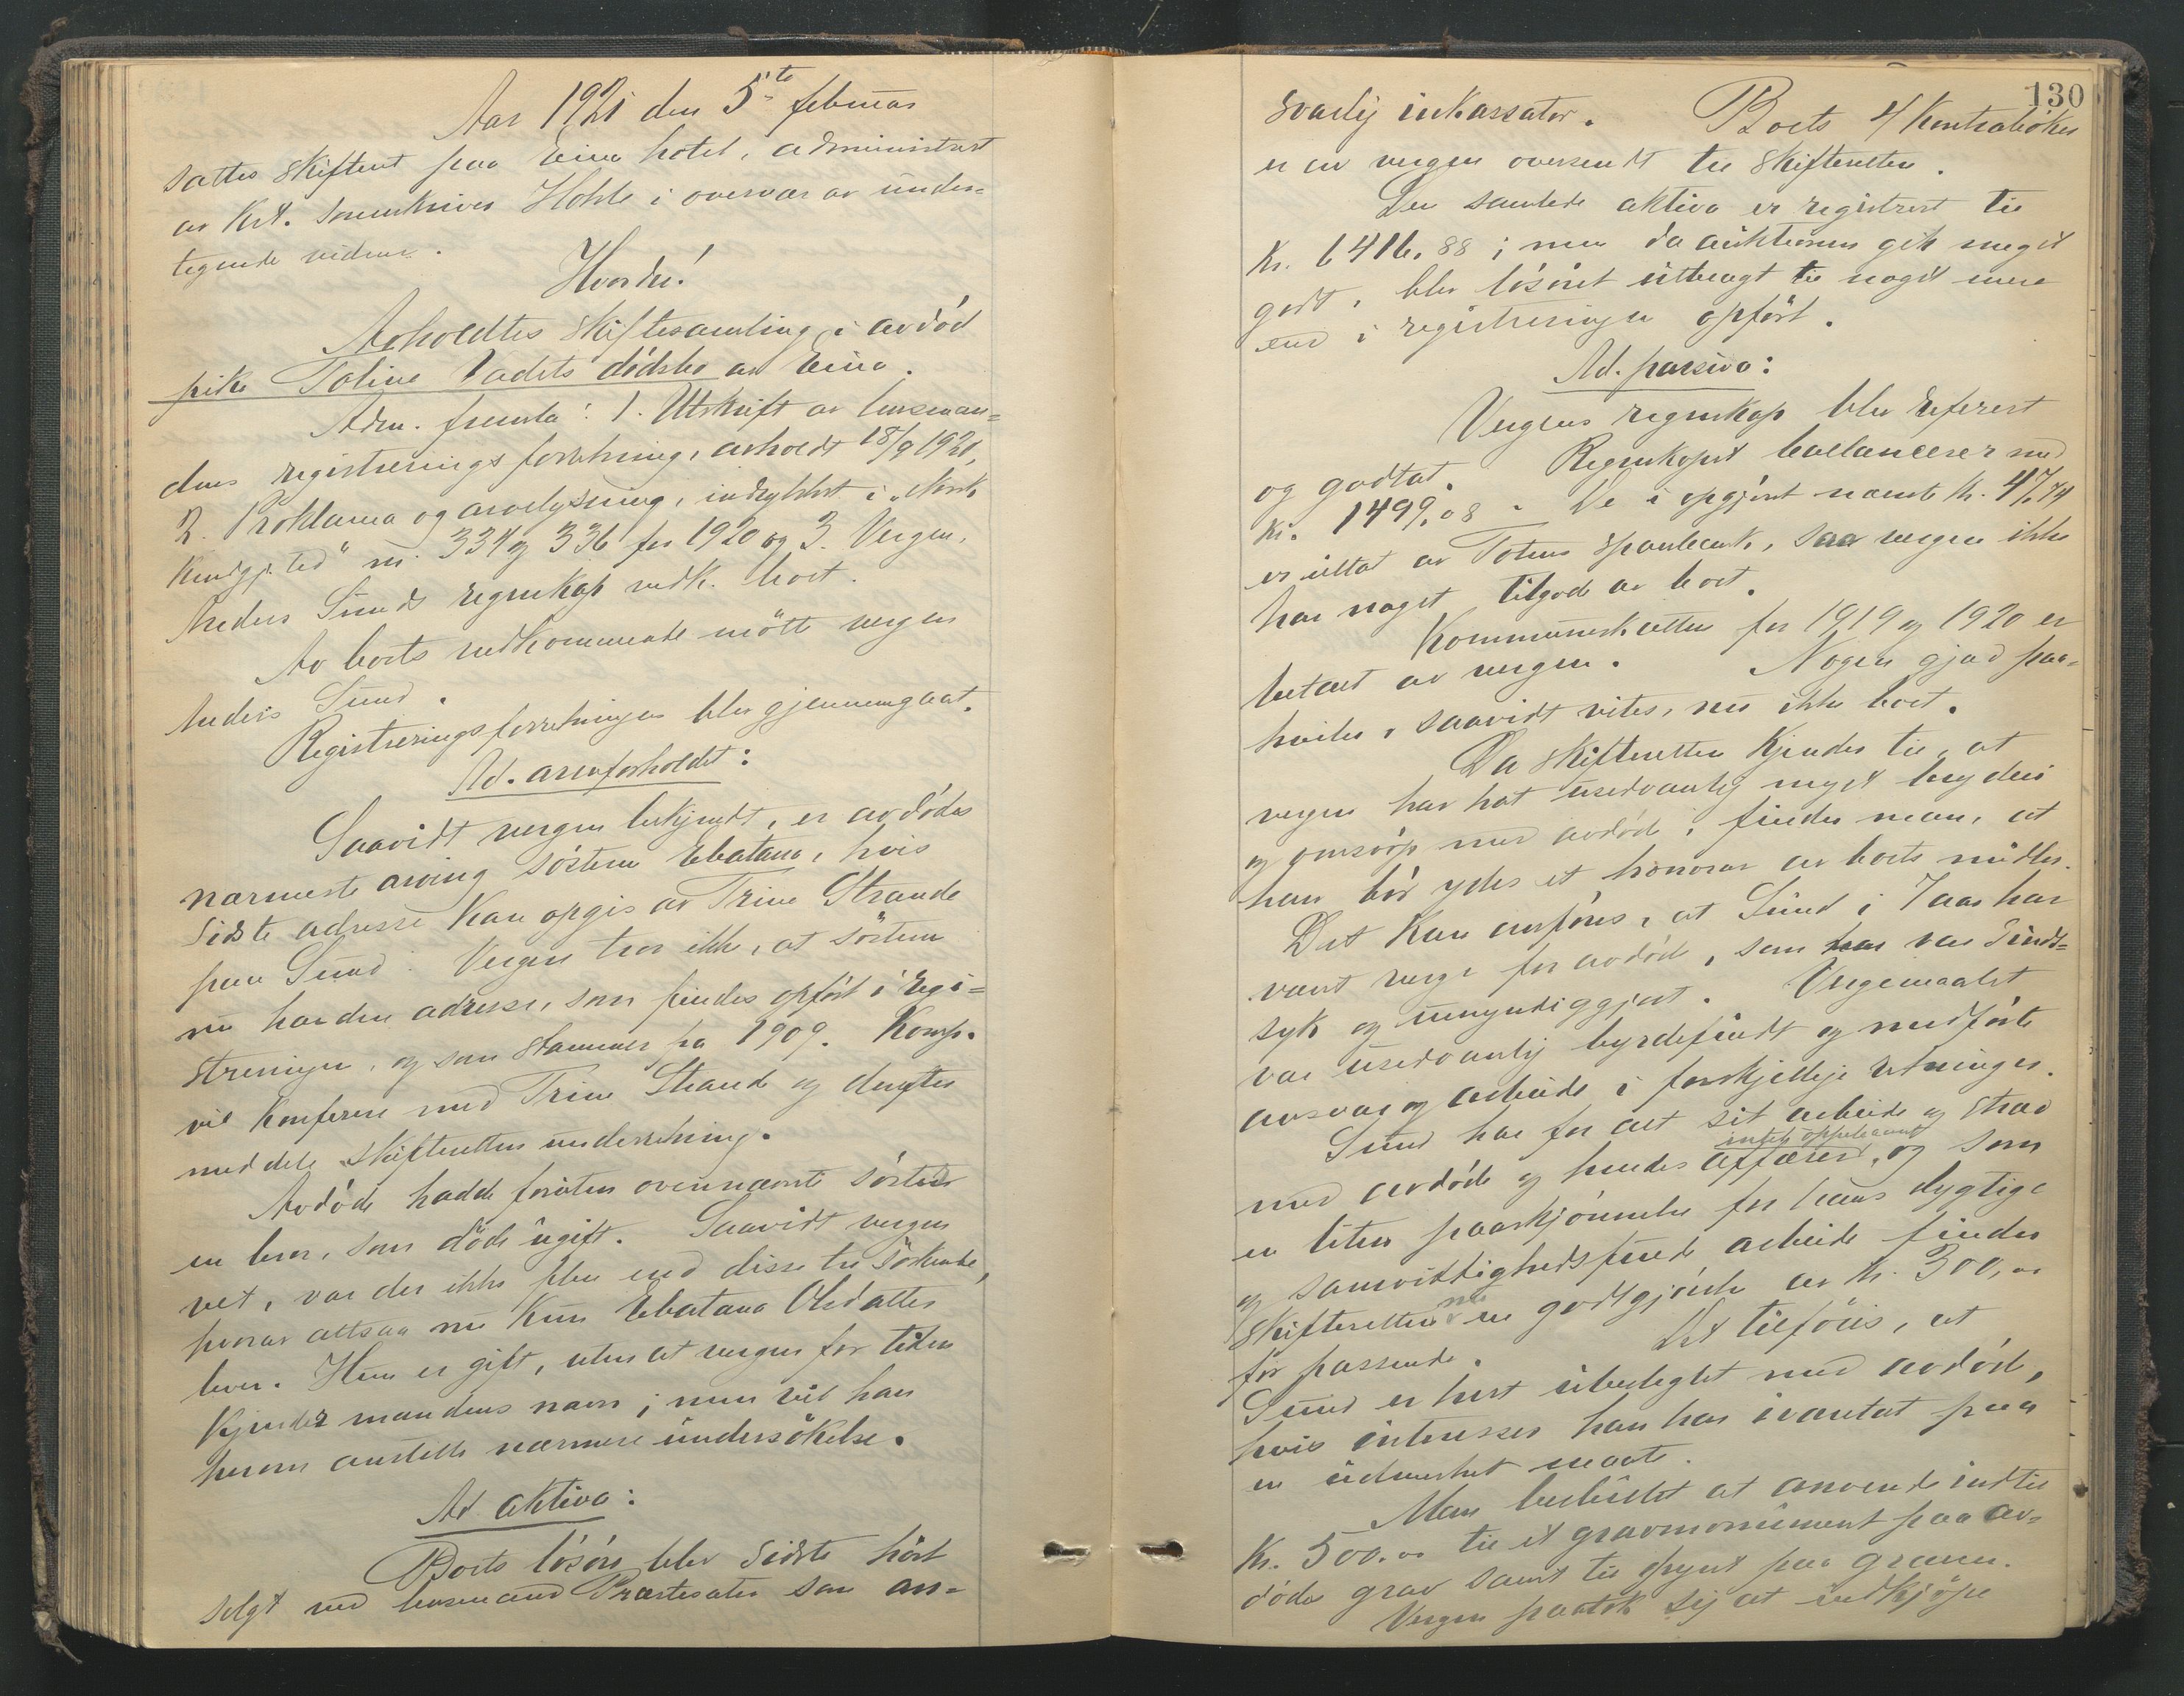 Aar 1921 den 5te februar
sattes skifteret paa Eina hotel, administrert
av Kst. Sorenskriver Hohle i overvær av under-
tegnede vidner.
Hvorder!
Avholdtes skiftesamling i avdød
pike Toline Vadets dødsbo av Eina.
Adm. fremla: 1. Utskrift av lensman-
dens registreringsforretning, avholdt 18/9 1920,
2. Proklama og arvelysning, indrykket i "Norsk
Kundgj. tid" nr. 334 og 336 for 1920 og 3. Vergen,
Anders Sunds regnskap vedk. boet.
Av boets vedkommende møtte vergen
Anders Sund.
Registreringsforretningen blev gjennemgaat.
Ad. arveforholdet:
Saavidt vergen bekjendt, er avdødes
nærmeste arving søsteren Ebatana, hvis
sidste adresse kan opgis av Trine Strande
paa Sund. Vergen tror ikke, at søsteren
nu har den adresse, som findes opført i regi-
streringen, og som stammer fra 1909. Komp.
vil konferere med Trine Strande og derefter
meddele skifteretten underretning.
Avdøde hadde foruten ovennævnte søster
en bror, som døde ugift. Saavidt vergen
vet, var der ikke flere end disse tre søskende,
hvorav altsaa nu kun Ebatana Olsdatter
lever. Hun er gift, uten at vergen for tiden
kjender mandens navn; men vil han
herom anstelle nærmere undersøkelse.
Ad aktiva:
Boets løsøre blev sidste høst
solgt ved lensmand Præstesater som an-
130
svarlig inkassator. Boets 4 Kontrabøker
er av vergen oversendt til skifteretten.
De samlede aktiva er registrert til
Kr. 6416.88; men da auktionen gik meget
godt, blev løsøret utbragt til noget mere
end i registreringen opført.
Ad. passiva:
Vergens regnskap blev refereret
og godtat. Regnskapet ballancerer med
Kr. 1499.08. De i opgjøret nævnte Kr. 47.74
er uttat av Totens Sparebank, saa vergen ikke
har noget tilgode av boet.
Kommuneskatten for 1919 og 1920 er
betalt av vergen. Nogen gjæld paa-
hviler, saavidt vites, nu ikke boet.
Da skifteretten kjender til, at
vergen har hat usedvanlig meget bryderi
og omsorg med avdøde, finder man, at
han bør ydes et honorar av boets midler.
Det kan anføres, at Sund i 7 aar har
været verge for avdøde, som var sinds-
syk og umyndiggjort. Vergemaalet
var usedvanlig byrdefuldt og medførte
ansvar og arbeide i forskjellige retninger.
Sund har for alt sit arbeide og stræv
med avdøde og hendes affærer intet oppebaaret, og som
en liten paaskjønnelse for hans dygtige
og samvittighedsfulde arbeide finder
skifteretten nu en godtgjørelse av Kr. 300,00
for passende. Det tilføies, at
Sund er helt ubeslegtet med avdøde,
hvis interesser han har ivaretat paa
en udmerket maate.
Man besluttet at anvende indtil
Kr. 500.00 til et gravmonument paa av-
dødes grav samt til prynt paa graven.
Vergen paatok sig at indkjøpe